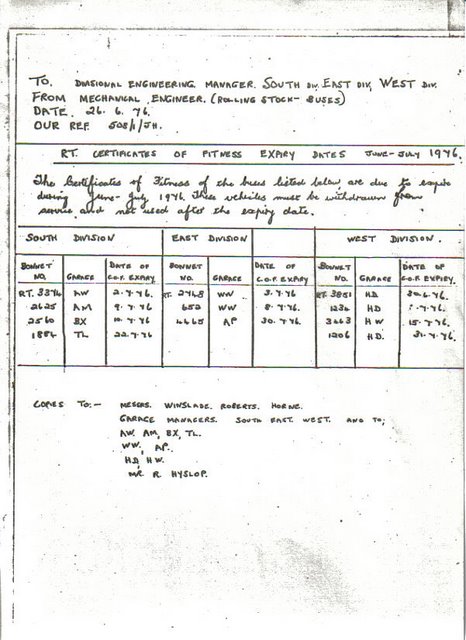 TO. DIVISIONAL ENGINEERING MANAGER. SOUTH DIV, EAST DIV, WEST DIV.
FROM MECHANICAL ENGINEER. (ROLLING STOCK- BUSES)
DATE. 26. 6. 76.
OUR REF. 508/1/JH.
RT. CERTIFICATES OF FITNESS EXPIRY DATES JUNE-JULY 1976.
The Certificates of Fitness of the buses listed below are due to expire
during June-July 1976. These vehicles must be withdrawn from
service and not used after the expiry date.
SOUTH DIVISION EAST DIVISION WEST DIVISION.
BONNET NO. GARAGE DATE OF C.O.F. EXPIRY BONNET NO. GARAGE DATE OF C.O.F. EXPIRY BONNET NO. GARAGE DATE OF C.O.F. EXPIRY.
RT. 3374 AW 2.7.76. RT. 2748 WW 3.7.76 RT. 3851 HD 30.6.76.
2625 AM 9.7.76 652 WW 8.7.76 1234 HD .7.76
2560 BX .7.76 4665 AP 30.7.76 3463 HW 15.7.76
1884 TL 22.7.76 1206 HD. 31.7.76.
COPIES TO:- MESSRS. WINSLADE. ROBERTS. HORNE.
GARAGE MANAGERS. SOUTH EAST. WEST. AND TO;
AW. AM, BX, TL.
WW, AP.
HD, HW.
MR R. HYSLOP.